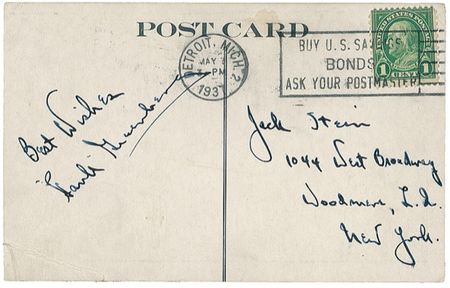 POST CARD
DETROIT, MICH. 2
MAY
PM
193
BUY U.S. SAVINGS
BONDS
ASK YOUR POSTMASTER
UNITED STATES POSTAGE
1 CENT 1
Best Wishes
Hank Greenberg
Jack Stein
1044 West Broadway
Woodmere, L.I.
New York.